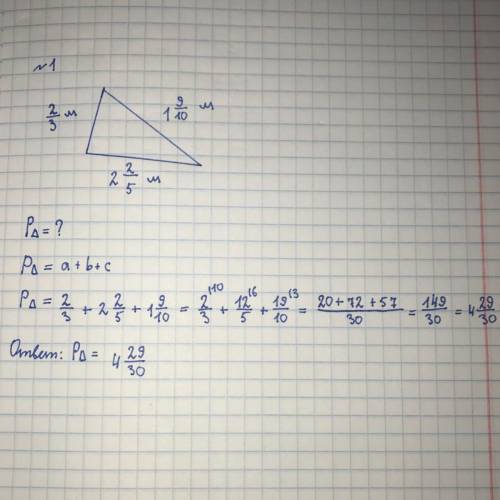 №1
2/3 м
1 9/10 м
2 2/5 м
P△ = ?
P△ = a + b + c
P△ = 2/3 + 2 2/5 + 1 9/10 = 2/3 (10 + 12/5 (6 + 19/10 (3 = 20 + 72 + 57/30 = 149/30 = 4 29/30
Ответ: P△ = 4 29/30